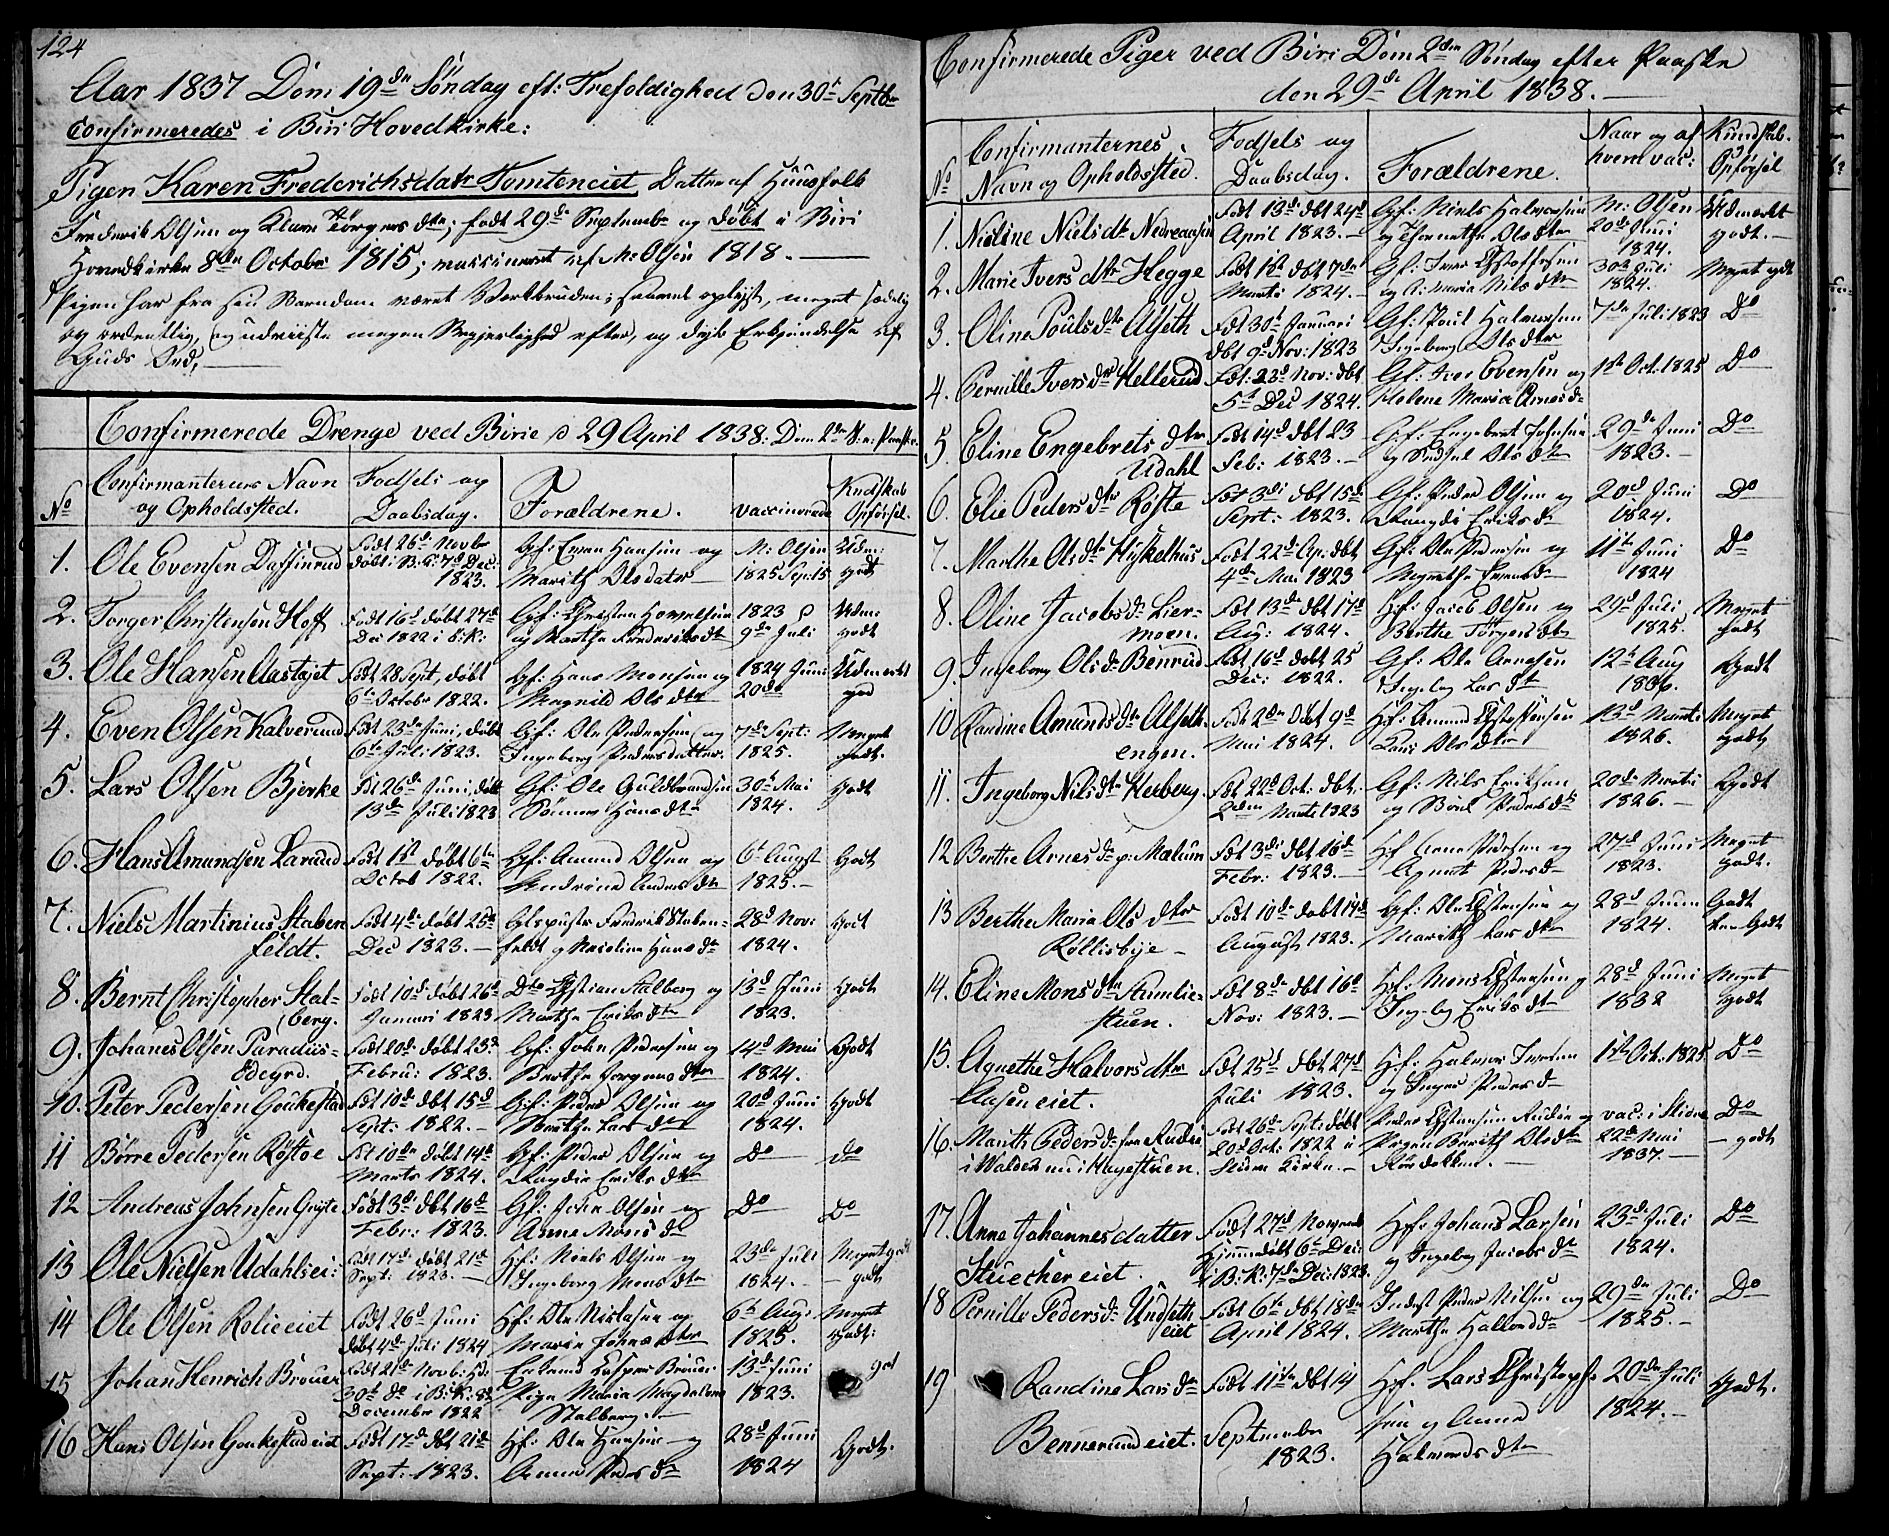 124
Aar 1837 Dom 19de Söndag eft: Trefoldighed den 30te Septbr
Confirmeredes i Biri Hovedkirke:
Pigen Karen Frederichsdatr Tomteneiet Datter af Huusfolk
Frederik Olsen og Karen Törgersdtr; født 29de Septembr og døbt i Biri
Hovedkirke 8de October 1815; vaccineret af M: Olsen 1818.
Pigen har fra sin Barndom været
og ordentlig, og udviiste megen Begjerlighed efter, og dyb Erkjendelse af
Guds Ord,
Confirmerede Drenge ved Birie d 29 April 1838: Dom 2den S. e: Paaske
No
Confirmanternes Navn
og Opholdssted.
Fødsels og
Daabsdag.
Forældrene.
vaccinerede
Kundskab
Opførsel.
1. Ole Evensen Dassinrud Født 26de Novbr døbt i B:K: 7de Dec: 1823. Gf: Even Hansen og Marith Olsdater M: Olsen 1825 Sep: 15 Udm: godt
2. Torger Christensen Hoff Født 16d døbt 27d Dec 1822 i B:K: Gf: Christen og Marthe Frederiksdtr 1823 d 9de Juli Udm: godt
3. Ole Hansen Aastøjet Født 28 Sept, døbt 6te Octobr 1822. Gf: Hans Monsen og Magnild Olsdtr 1824 Juni 20de Udmerket god
4. Even Olsen Kalverud Født 23de Juni, døbt 6te Juli 1823. Gf: Ole Pedersen og Ingeborg Pedersdatter. 7de Sept: 1825. Meget godt.
5. Lars Olsen Bjerke Født 26de Juni, døbt 13de Juli 1823 Gf: Ole Guldbrandsen Hansdtr 30te Mai 1824. Godt
6. Hans Amundsen Larud Født 1st døbt 6te Octob 1822. Gf: Amund Olsen og Andersdtr 6te Augst 1825. Godt
7. Niels Martinius Staben
feldt. Født 4de døbt 25de Dec 1823. Frederik Staben-
feldt og Karoline Hansdtr 28d Nov: 1824. Godt
8. Bernt Christopher Stal-
berg. Født 10d døbt 26de Januari 1823 Do Christian Stalberg og Marthe Eriksdtr 13d Juni 1823. Godt
9. Johanes Olsen Paradiis-
Ødegrd. Født 20d døbt 23de Februi: 1823. Gf: John Pedersen og Berthe Jørgensdtr 14d Mai 1824. Godt
10. Peter Pedersen Goukestad Født 10d døbt 15d Sept: 1822. Gf: Peder Olsen og Marthe Larsdtr 20d Juni 1824. Godt
11 Børre Pedersen Røstøe Født 10de døbt 14d Marts 1824. Gf: Peder Olsen og Eriksdtr Do Do
12 Andreas Johnsen Født 3d døbt 16d Febr: 1823. Gf: John Olsen og Anne Monsdr Do Do
13 Ole Nielsen Udahlsei: Født 17d døbt 21d Sept: 1823. Hf: Niels Olsen og Ingeborg Monsdtr 23de Juli 1824. Meget godt
14 Ole Olsen Rolieeiet Født 26d Juni døbt 4d Juli 1824 Hf: Ole og Marie Johnsdtr 6te Aug: 1825. Meget godt:
15 Johan Henrich Bröuer Født 21de Novb: Hd: 30te do i B:K: 8de December 1822 Bröuer Pige Maria Magdalena Stalberg. 13de Juni 1823. god
16 Hans Olsen Goukestadeiet Født 17d døbt 21de Sept: 1823. Hf: Ole Hansen og Anne Pedersdr 28d Juni 1824 Godt.
Confirmerede Piger ved Biri Dom 2den Söndag efter Paaske
den 29de April 1838.
No
Confirmanternes
Navn og Opholdssted.
Fødsels og
Daabsdag.
Forældrene.
Naar og af
hvem vac:
Kundskab.
Opførsel
1. Nieline Nielsdtr Født 13de døbt 24d April 1823. Gf: Niels Halvorsen og Olsdtr M: Olsen 20de Juni 1824. Udmerket godt.
2. Marie Iversdtr Hegge Født 1st døbt 7de Marti 1824. Gf: Iver Christophersen og A: Maria Nilsdtr 30te Juli 1824. Meget godt
3. Oline Poulsdtr Alseth Født 30te Januari døbt 9d Nov: 1823 Gf: Poul Halvorsen Ingeborg Olsdtr 7de Juli 1823 Do
4. Pernille Iversdtr Hellerud Født: 23d Nov: døbt 5te Dec 1824. Gf: Iver Evensen og Helene Maria Arnesdr 1ste Oct: 1825 Do
5 Eline Engebretsdtr
Udahl Født 14d døbt 23 Feb: 1823. Gf: Engebret Johnsen og Olsdtr 29de Juni 1823. Do
6. Elie Pedersdtr Røste Født 3di døbt 15de Sept: 1823. Gf: Peder Olsen og Eriksdr 20d Juni 1824. Do
7. Marthe Olsdtr Hykelhus Født 22d Ap: døbt 4de Mai 1823 Gf: Ole Pedersen og Evensdr 11te Juni 1824 Do
8. Oline Jacobsdr Lier-
moen. Født 13de døbt 17d Aug: 1824. Hf: Jacob Olsen og Berthe Törgersdtr 29d Juli 1825. Meget godt
9. Ingeborg Olsdr Benrud Født 16d døbt 25 Dec: 1822. Gf: Ole Arnesen Ingebg Larsdtr 12te Aug Godt
10 Randine Amundsdtr Alseth
engen. Født 2de døbt 9d Mai 1824. Hf: Amund Christophersen Kari Olsdtr 13d Marti 1826. Meget godt
11. Ingeborg Nilsdtr Herberg. Født 22d Oct: døbt. 2den Marts 1823 Gf: Nils Eriksen og Pedersdtr 20de Marti 1826. Godt
12 Berthe Arnesdr p: Mælum Født 3di døbt 16de Febr: 1823. Hf Arne Pedersen og Agnet Pedersdr 27d Juni 1823. Meget godt.
13 Berthe Maria Olsdtr
Rollisbye Født 10de døbt 14d August 1823. Gf: Ole Christensen og Marith Larsdtr 28d Juni 1824. Godt Godt
14. Eline Monsdtr Stumlie-
stuen. Født 8de døbt 16d Nov: 1823. Hf: Mons Christensen og Ingebg Eriksdtr 28d Juni 1832 Meget godt
15. Agnethe Halvorsdtr
Aaseneiet. Født 25d døbt 27d Juli 1823. Hf: Halvor Iversen og Inger Pedersdr 1ste Oct: 1825 Do
16. Marith Pedersdr fra
i Walders nu i Hagestuen. Født 26de Sept: døbt 20d Oct: 1822 i Kirke. Peder Christensen og Pigen Berith Olsdtr vac: i 22de Mai 1837. Do godt
17. Anne Johannesdatter
Stuecher eiet. Født 27d Novembr Hjemmedøbt 6te Dec: i B:K: 7de Dec: 1823. Hf: Johans Larsen og Ingebg Jacobsdtr 23de Juli 1824. Do
18 Pernille Pedersdr Undseth
eiet Født 6te døbt 18de April 1824. Inderst Peder Nilsen og Marthe Halvorsdr 29de Juli 1825. Do
19 Randine Larsdr
Bennerudeiet. Født 11te døbt 14 Septembr 1823. Hf. Lars Christoph-
sen og Anne
Halvorsdtr 20de Juli 1824. Godt.